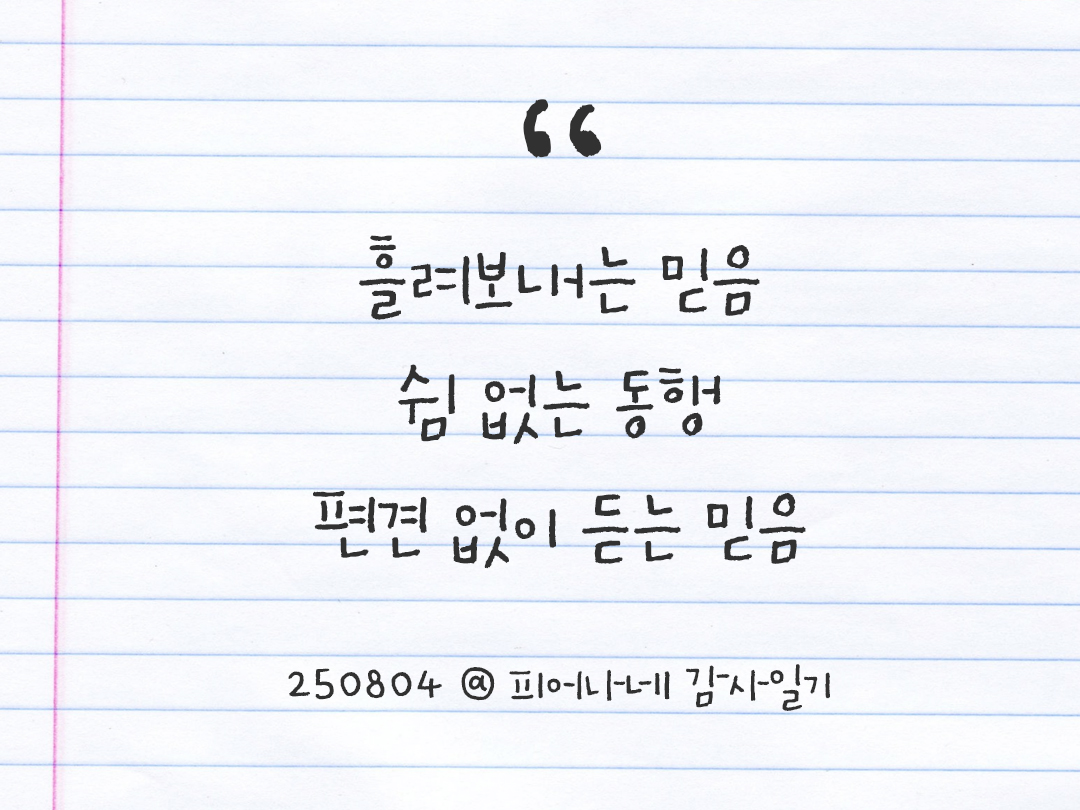 “
흘려보내는 믿음
쉼 없는 동행
편견 없이 듣는 믿음
250804 @ 피어나네 감사일기